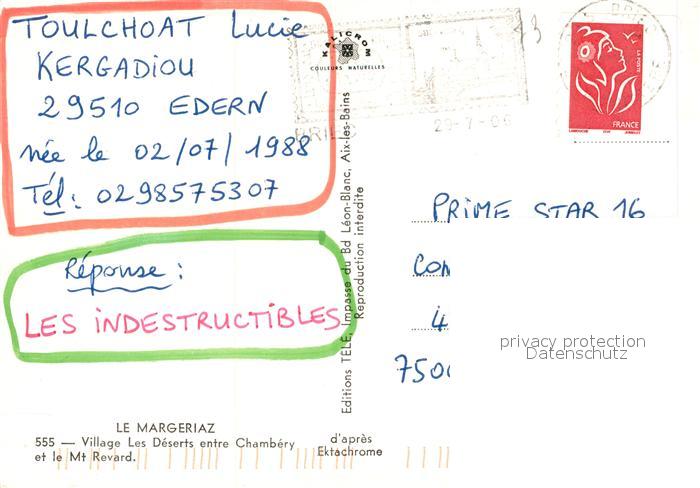 TOULCHOAT Lucie
KERGADIOU
29510 EDERN
née le 02/07/1988
Tél: 0298575307
Réponse :
LES INDESTRUCTIBLES
LE MARGERIAZ
555 — Village Les Déserts entre Chambéry
et le Mt Revard.
d'après
Ektachrome
KALICROM
COULEURS NATURELLES
Editions TÉLÉ, Impasse du Bd Léon-Blanc, Aix-les-Bains
Reproduction interdite
29-7-06
LA POSTE
FRANCE
PRIME STAR 16
privacy protection
Datenschutz